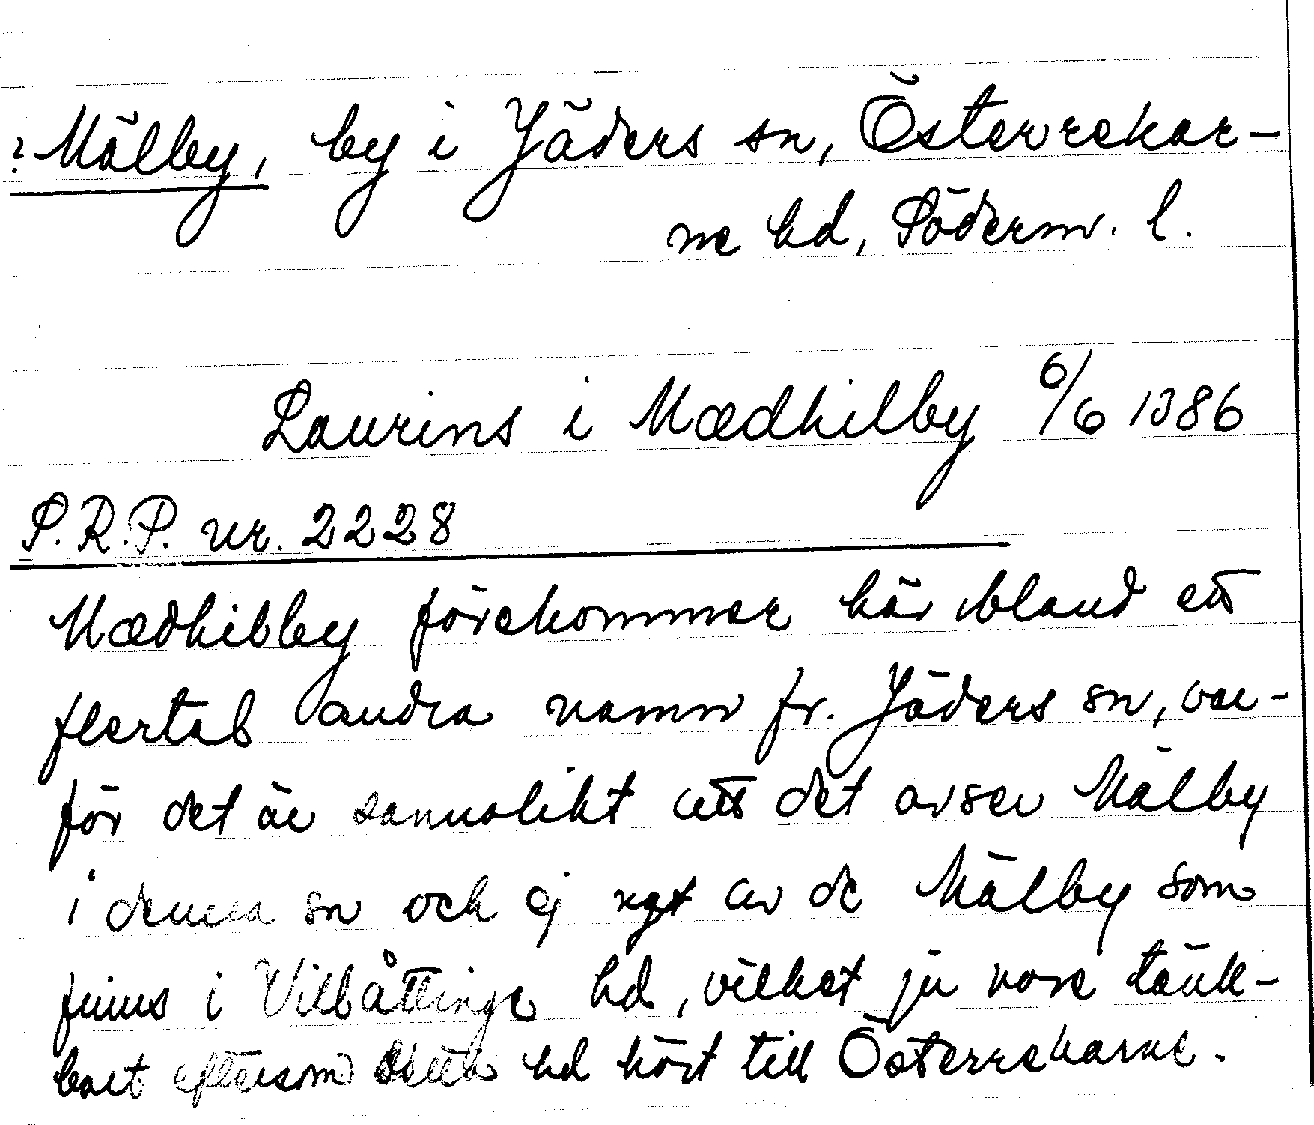 ? Mälby, by i Jäders sn, Österrekar-
ne hd, Söderm. l.
Laurins i Mædhilby 6/6 1386
S.R.P. nr. 2228
Mædhilby förekommer här bland ett
flertal andra namn fr. Jäders sn, var-
för det är sannolikt att det avser Mälby
i denna sn och ej ngt av de Mälby som
finns i Villåttinge hd, vilket ju vore tänk-
bart eftersom detta hd hört till Österrekarne.